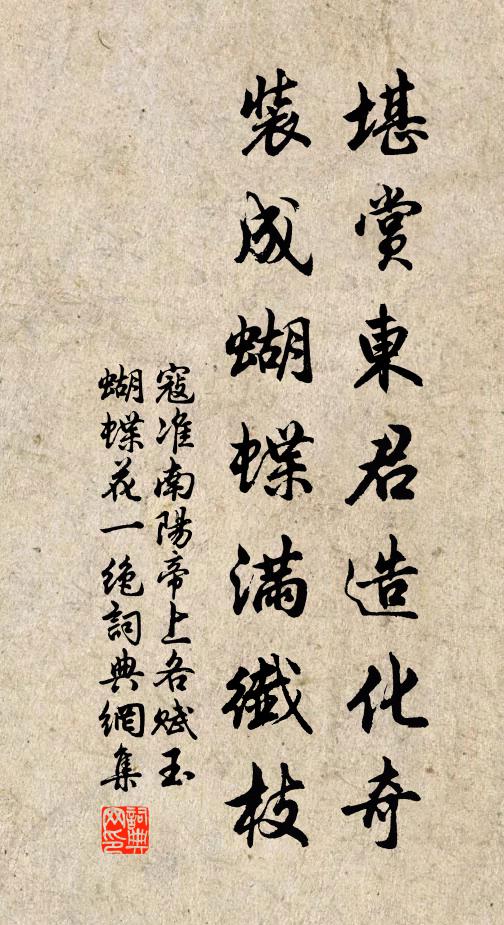 堪賞東君造化奇
裝成蝴蝶滿纖枝
寇准南陽帝上各賦玉
蝴蝶花一絶詞典網集
詞典网印